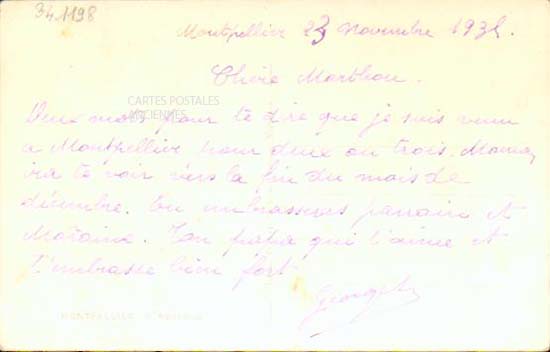 34.1198
Montpellier 23 Novembre 193
Chère Marthou.
CARTES POSTALES
ANCIENNES
Deux mots pour te dire que je suis venu
a Montpellier pour deux ou trois. Maman
ira te voir vers la fin du mois de
décembre. Tu embrasseras parrain et
Maraine. Ton papa qui t'aime et
t'embrasse bien fort
MONTPELLIER